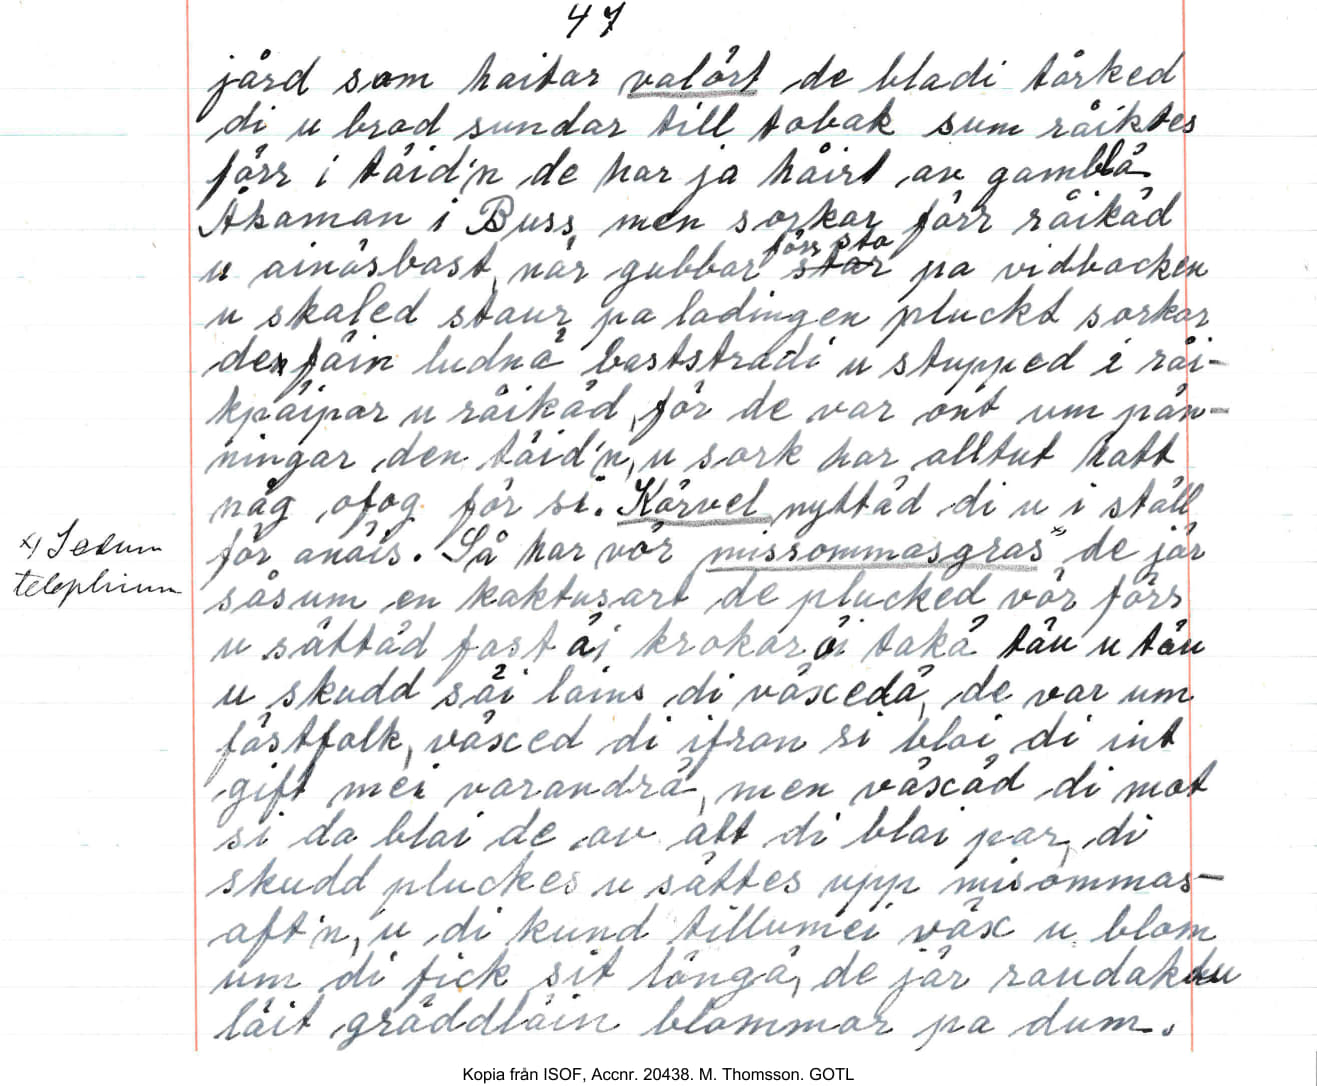 47
jård som haitar valört de bladi tårked
di u brod sundar till tobak sum råiktes
förr i tåid'n de har ja håirt av gamblå
Akaman i Buss, men sorkar förr råikåd
u ainåsbast, når gubbar förr sto star pa vidbacken
u skaled staur pa ladingen pluckt sorkar
den fåin ludnå baststradi u stupped i råi-
kpåipar u råikåd, för de var ont um pån-
ningar den tåid'n, u sork har alltut hatt
någ ofog för si. Körvel nyttåd di u i ställ
för anåis. Så har vör missommasgras x) de jår
såsum en kaktusart de plucked vör förr
u såttåd fast åi krokar åi takå tåu u tåu
u skudd såi lains di våxedå, de var um
fåstfolk, våxed di ifran si blai di int
gift mei varandrå, men våxåd di mot
si da blai de av att di blai par, di
skudd pluckes u såttes upp misommas-
aft'n, u di kund tillumei våx u blom
um di fick sit långå, de jår raudaktu
låit gråddlåin blommar pa dum.
x) Sedum
telephium
Kopia från ISOF, Accnr. 20438. M. Thomsson. GOTL